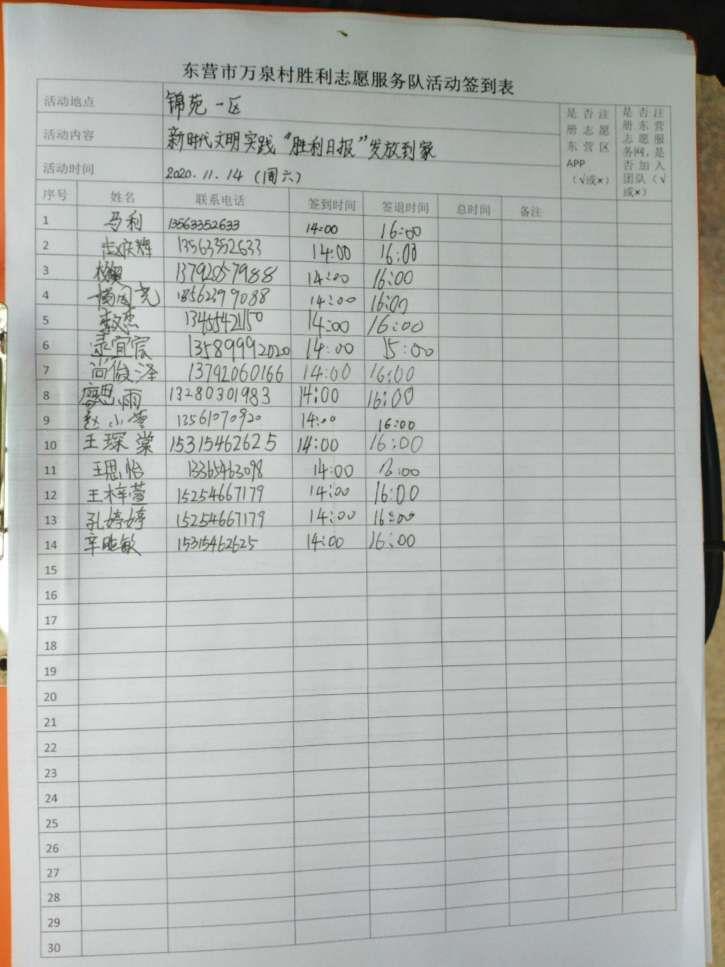 东营市万泉村胜利志愿服务队活动签到表
活动地点 锦苑一区
活动内容 新时代文明实践“胜利日报”发放到家
活动时间 2020.11.14 (周六)
是否注册志愿东营区APP(√或×)
是否注册东营志愿服务网,是否加入团队(√或×)
序号 姓名 联系电话 签到时间 签退时间 总时间 备注
1 马利 13563352633 14:00 16:00
2 13563352633 14:00 16:00
3 13792057988 14:00 16:00
4 14:00 16:00
5 李文杰 14:00 16:00
6 13589992020 14:00 15:00
7 尚俊泽 13792060166 14:00 16:00
8 13280301983 14:00 16:00
9 赵小雪 13561070920 14:00 16:00
10 王琛棠 15315462625 14:00 16:00
11 王思怡 13365463098 14:00
12 王梓萱 15254667179 14:00 16:00
13 孔婷婷 15254667179 14:00 16:00
14 辛晓敏 15315462625 14:00 16:00
15
16
17
18
19
20
21
22
23
24
25
26
27
28
29
30